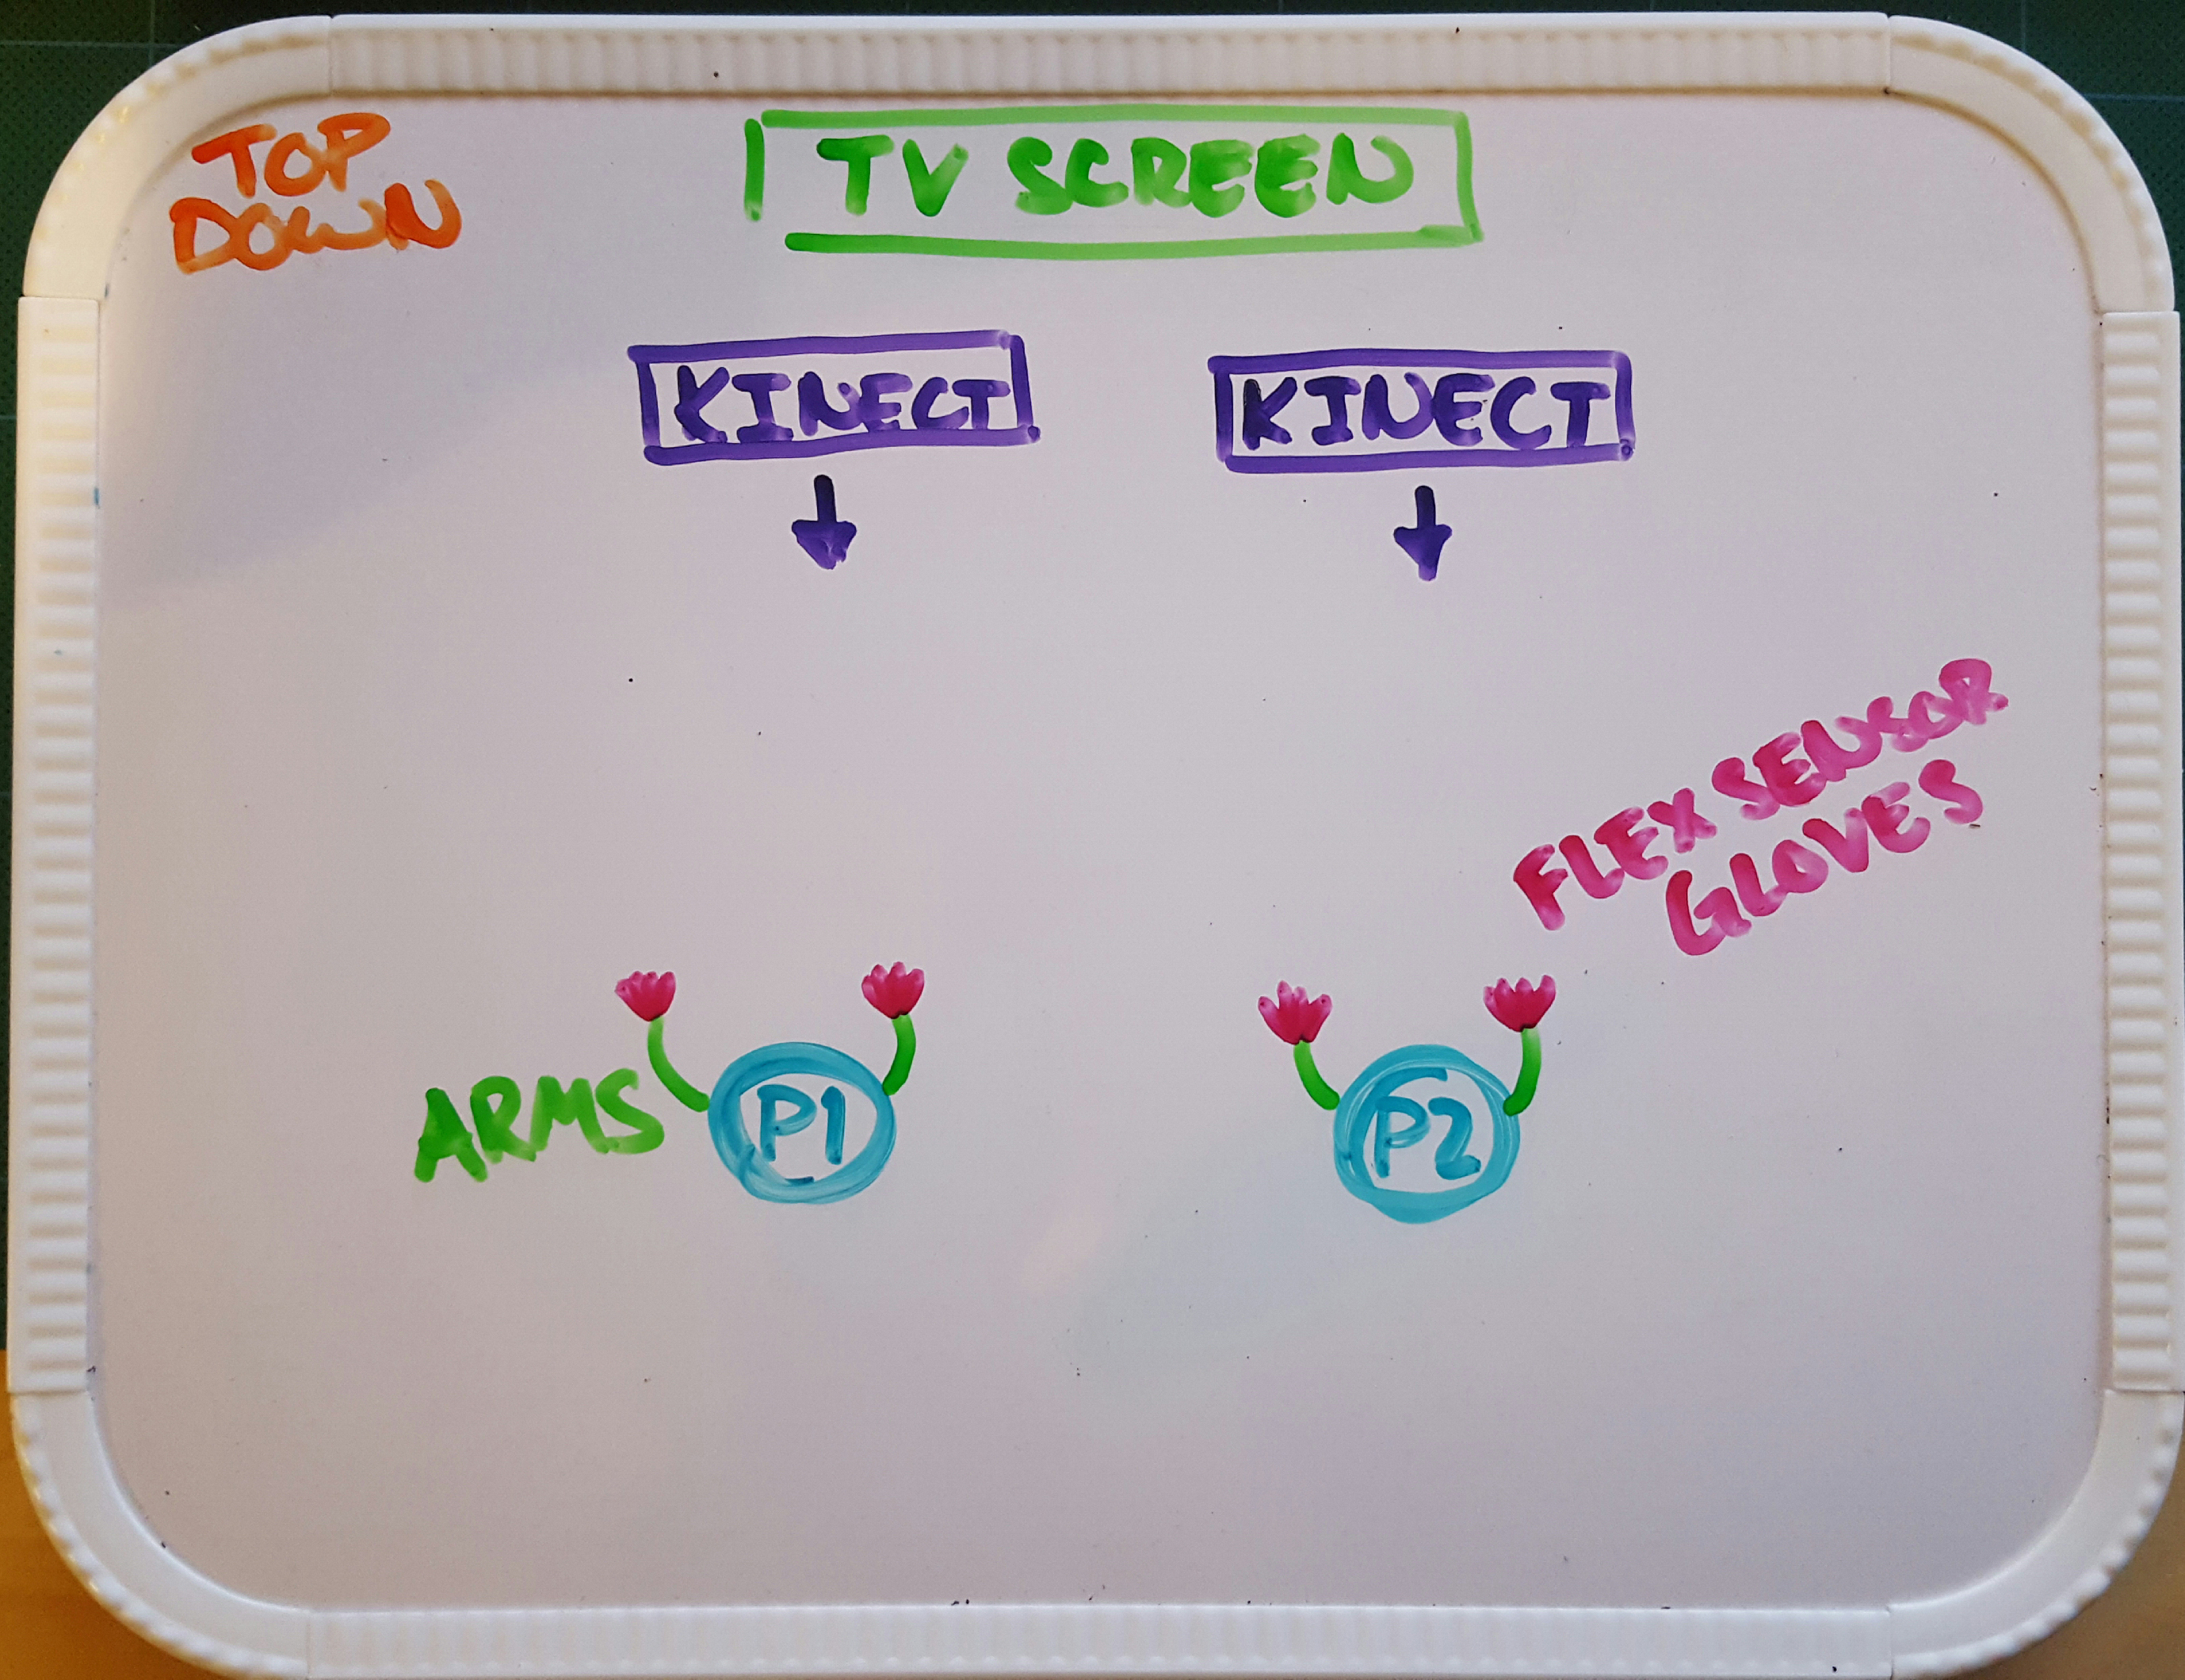 TOP
DOWN
TV SCREEN
KINECT
KINECT
FLEX SENSOR
GLOVES
ARMS
P1
P2